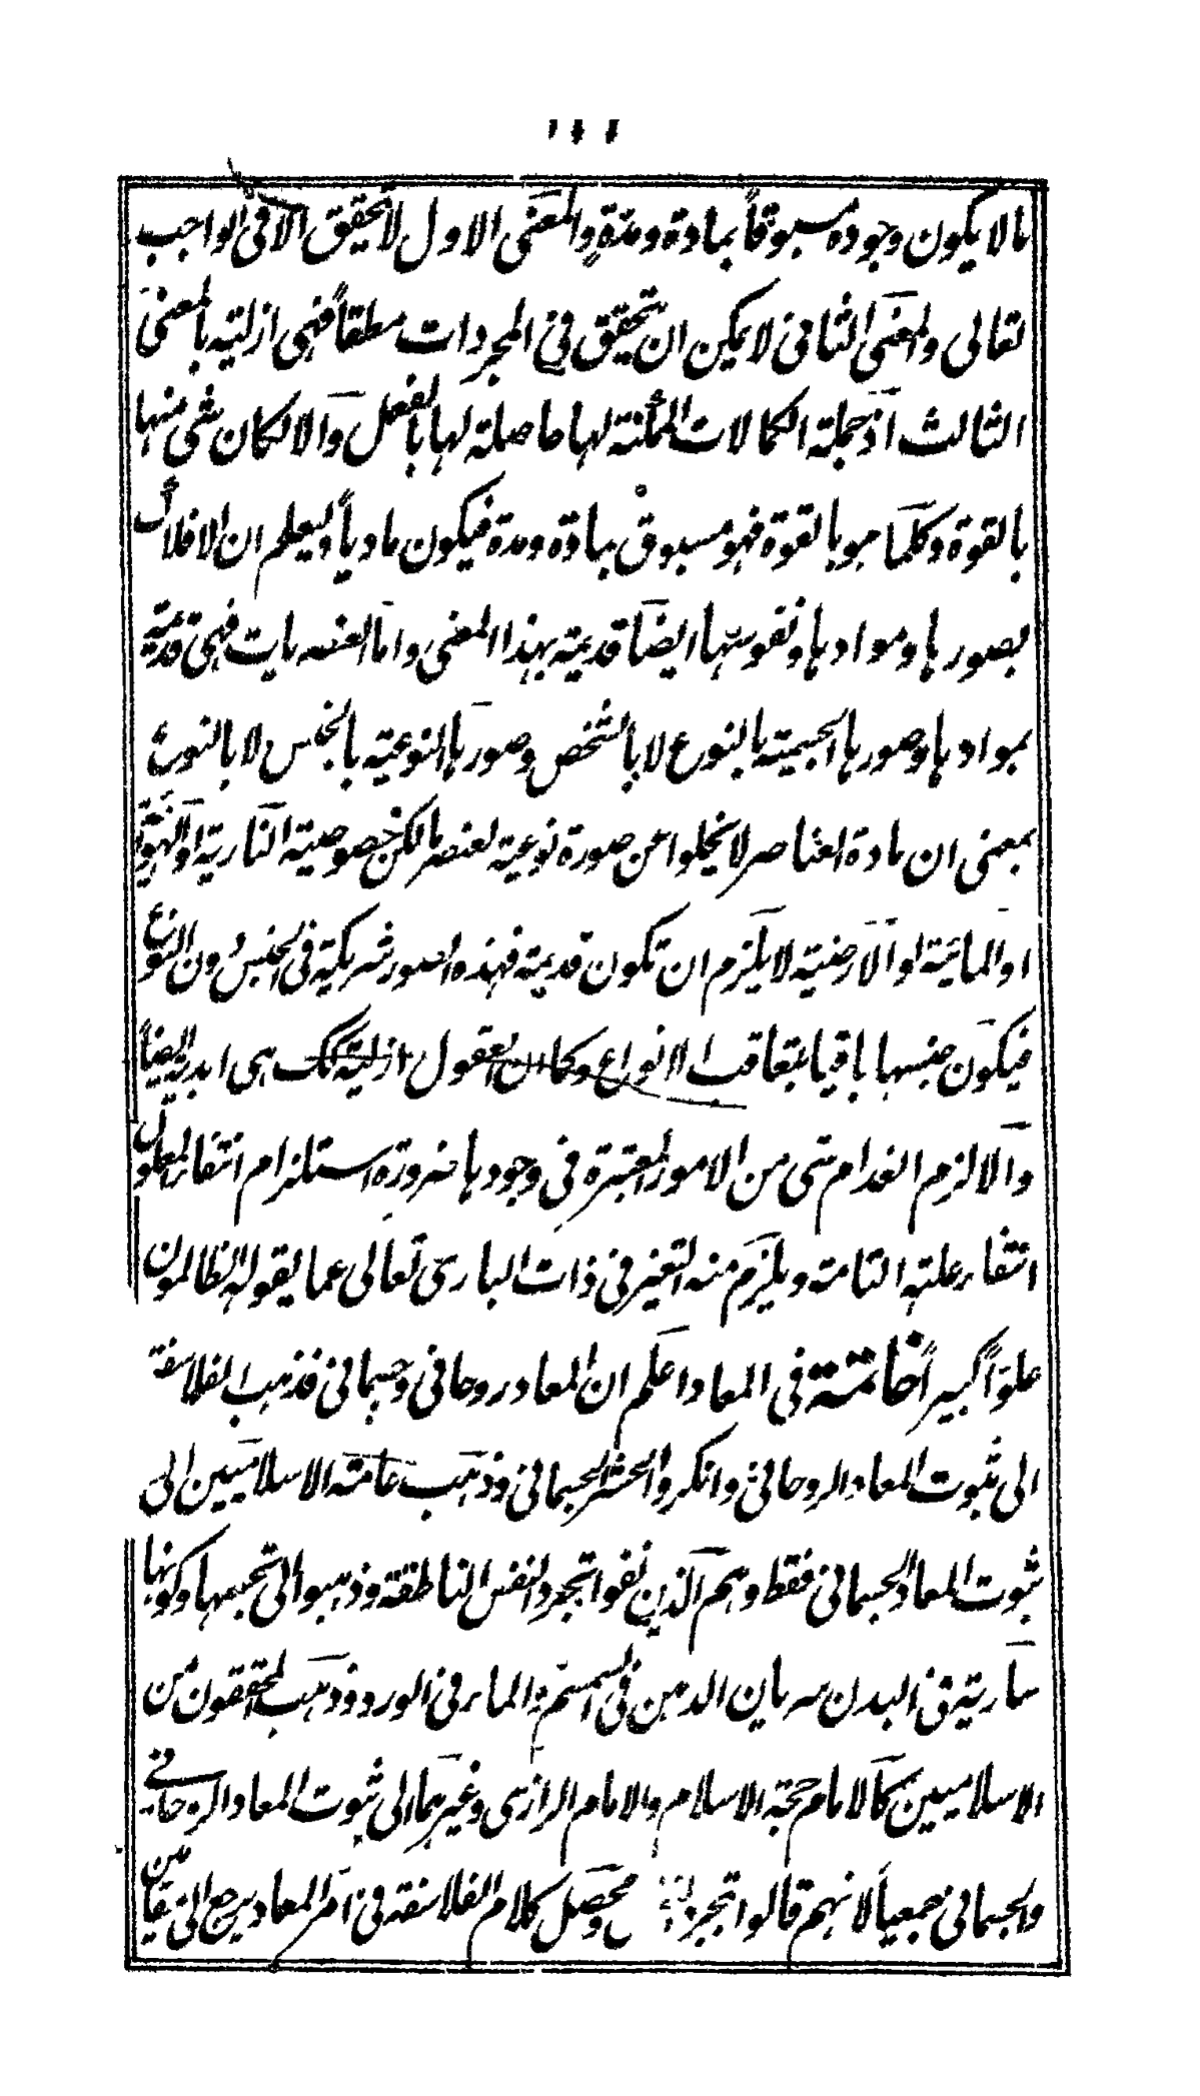 ما لا يكون وجوده مسبوقاً بمادة ومدة والمعنى الاول لا يتحقق الا فى الواجب
تعالى والمعنى الثانى لا يمكن ان يتحقق فى المجردات مطلقاً فهى ازلية بالمعنى
الثالث اذ جملة الكمالات الممكنة لها حاصلة لها بالفعل والا لكان شى منها
بالقوة وكلما هو بالقوة فهو مسبوق بمادة ومدة فيكون مادياً وليعلم ان الافلاك
بصورها وموادها ونفوسها ايضا قديمة بهذا المعنى واما العنصريات فهى قديمة
بموادها وصورها الجسمية بالنوع لا بالشخص وصورها النوعية بالجنس لا بالنوع
بمعنى ان مادة العناصر لا يخلوا من صورة نوعية لعنصر ما لكن خصوصية النارية او الهوائية
او المائية او الارضية لا يلزم ان تكون قديمة فهذه الصور شريكة فى الجنس دون النوع
فيكون جنسها باقيا بتعاقب الانواع وكما ان العقول ازلية كك هى ابدية ايضاً
والا لزم انعدام شى من الامور المعتبرة فى وجودها ضرورة استلزام انتفاء المعلول
انتفاء علته التامة ويلزم منه التغير فى ذات البارى تعالى عما يقوله الظالمون
علوّاً كبيراً خاتمة فى المعاد اعلم ان المعاد روحانى وجسمانى فذهب الفلاسفة
الى ثبوت المعاد الروحانى وانكروا الحشر الجسمانى وذهب عامة الاسلاميين الى
ثبوت المعاد الجسمانى فقط وهم الذين نفوا تجرد النفس الناطقة وذهبوا الى تجسمها وكونها
سارية فى البدن سريان الدهن فى السمسم والماء فى الورد وذهب المحققون من
الاسلاميين كالامام حجة الاسلام والامام الرازى وغيرهما الى ثبوت المعاد الروحانى
والجسمانى جميعاً لانهم قالوا تجرد محصل كلام الفلاسفة فى امر المعاد يرجع الى مقامين